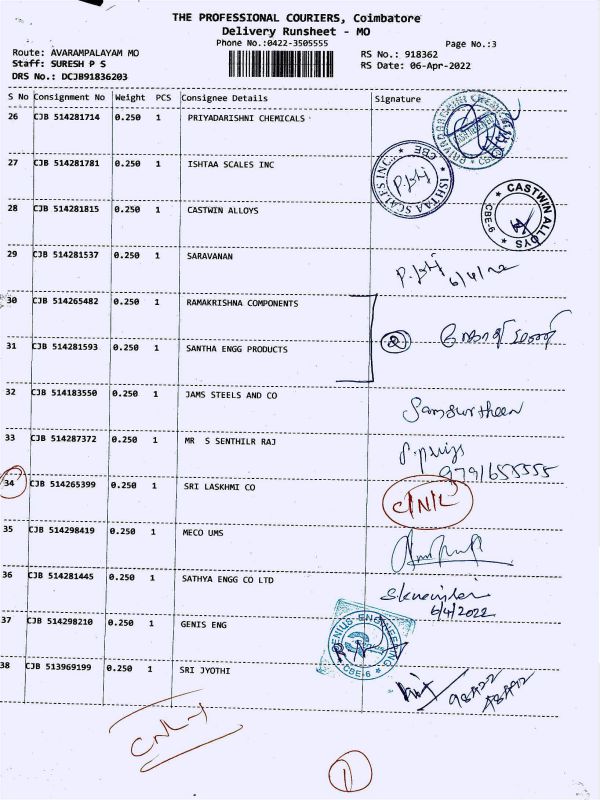 THE PROFESSIONAL COURIERS, Coimbatore
Delivery Runsheet - MO
Phone No.:0422-3505555
Page No.:3
Route: AVARAMPALAYAM MO
RS No.: 918362
Staff: SURESH P S
RS Date: 06-Apr-2022
DRS No.: DCJB91836203
S No Consignment No Weight PCS Consignee Details Signature
26 CJB 514281714 0.250 1 PRIYADARISHNI CHEMICALS
27 CJB 514281781 0.250 1 ISHTAA SCALES INC
ISHTAA SCALES INC. * CBE *
28 CJB 514281815 0.250 1 CASTWIN ALLOYS
CASTWIN ALLOYS * CBE-6 *
29 CJB 514281537 0.250 1 SARAVANAN
6/4/22
30 CJB 514265482 0.250 1 RAMAKRISHNA COMPONENTS
31 CJB 514281593 0.250 1 SANTHA ENGG PRODUCTS
2
32 CJB 514183550 0.250 1 JAMS STEELS AND CO
33 CJB 514287372 0.250 1 MR S SENTHILR RAJ
34 CJB 514265399 0.250 1 SRI LASKHMI CO
C/N/L
35 CJB 514298419 0.250 1 MECO UMS
36 CJB 514281445 0.250 1 SATHYA ENGG CO LTD
6/4/2022
37 CJB 514298210 0.250 1 GENIS ENG
GENIUS ENGINEERING * CBE-6 *
38 CJB 513969199 0.250 1 SRI JYOTHI
CNL-1
1